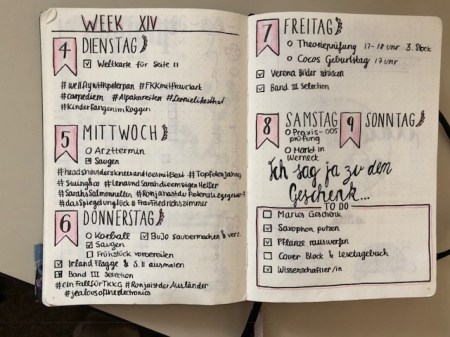 WEEK XIV
4
DIENSTAG
Weltkarte für Seite 11
#wellflywithpeterpan #FKKmitfrauwart
#carpediem #Alpakareiten
#KinderfangenimRoggen
5
MITTWOCH
Arzttermin
Saugen
#headshoulderskneesandtoesmitBeat #Topfotojahres
#swing&co #LenaundSarahdieemsigenHelfer
#SarahsSalmonnellen
#dasSpiegeldunglück #HanfriedrichsZimmer
6
DONNERSTAG
Korball
BuJo saubermachen & verz.
Saugen
Frühstück vorbereiten
Irland Flagge & S.11 ausmalen
Band III Selection
#einFallfürTKKG #RonjaistderAusländer
#jealousoftheelectronics
7
FREITAG
Theorieprüfung 17-18 uhr 3. Stock
Cocos Geburtstag 17 uhr
Verena Bilder schicken
Band III Selection
8
SAMSTAG
Praxis-DOS
prüfung
Markt in
Werneck
9
SONNTAG
Ich sag ja zu dem
Geschenk...
TO DO
Marius Geschenk
Saxophon putzen
Pflanze rauswerfen
Cover Block 4 Lesetagebuch
Wissenschaftler/in